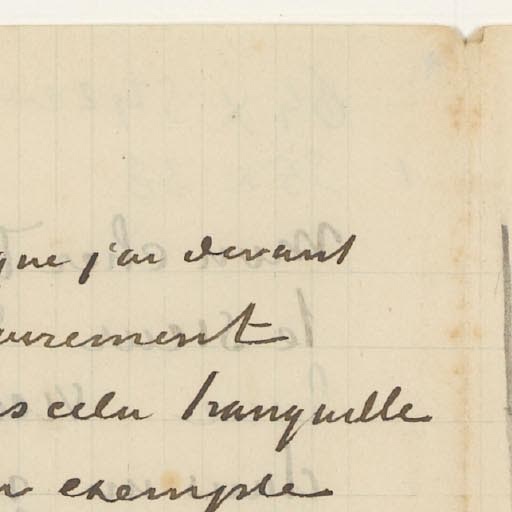 que j'ai devant
urement
s cela tranquille
exemple